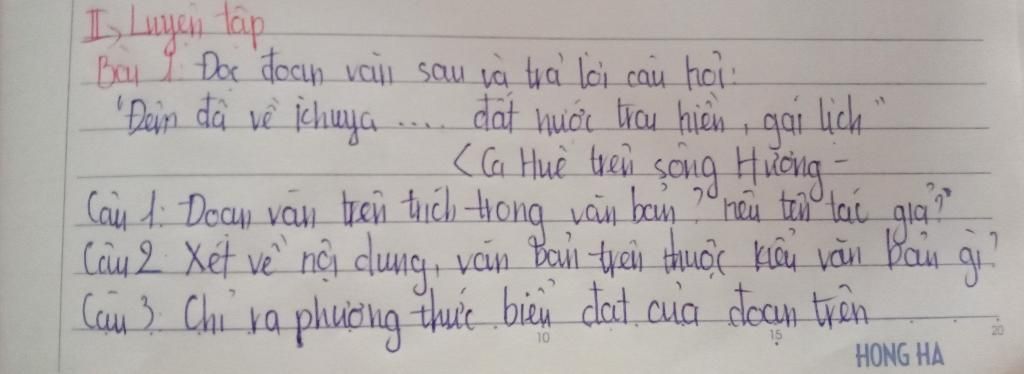 II, Luyện tập
Bài 1: Đọc đoạn văn sau và trả lời câu hỏi:
"Đêm đã về khuya .... đất nước trai hiền, gái lịch"
< Ca Huế trên sông Hương -
Câu 1: Đoạn văn trên trích trong văn bản? nêu tên tác giả?"
Câu 2 Xét về nội dung, văn bản trên thuộc kiểu văn bản gì?
Câu 3. Chỉ ra phương thức biểu đạt của đoạn trên
10 15 20
HONG HA